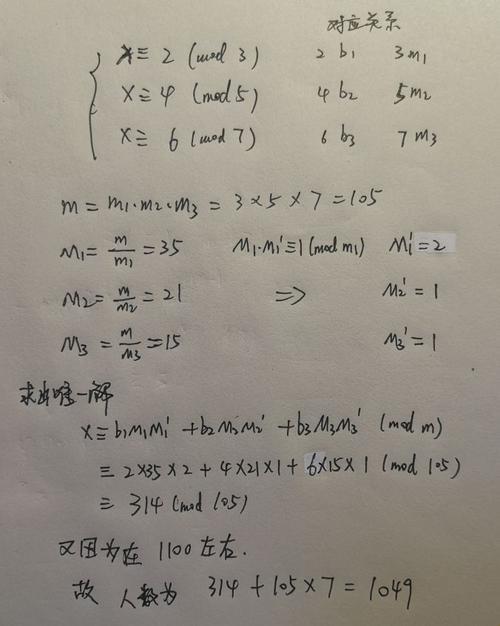 对应关系
x ≡ 2 (mod 3) 2 b₁ 3 m₁
x ≡ 4 (mod 5) 4 b₂ 5 m₂
x ≡ 6 (mod 7) 6 b₃ 7 m₃
m = m₁·m₂·m₃ = 3×5×7 = 105
M₁ = m/m₁ = 35 M₁·M₁' ≡ 1 (mod m₁) M₁' = 2
M₂ = m/m₂ = 21 => M₂' = 1
M₃ = m/m₃ = 15 M₃' = 1
求出唯一解
x ≡ b₁M₁M₁' + b₂M₂M₂' + b₃M₃M₃' (mod m)
≡ 2×35×2 + 4×21×1 + 6×15×1 (mod 105)
≡ 314 (mod 105)
又因为在 1100 左右.
故 人数为 314 + 105 × 7 = 1049